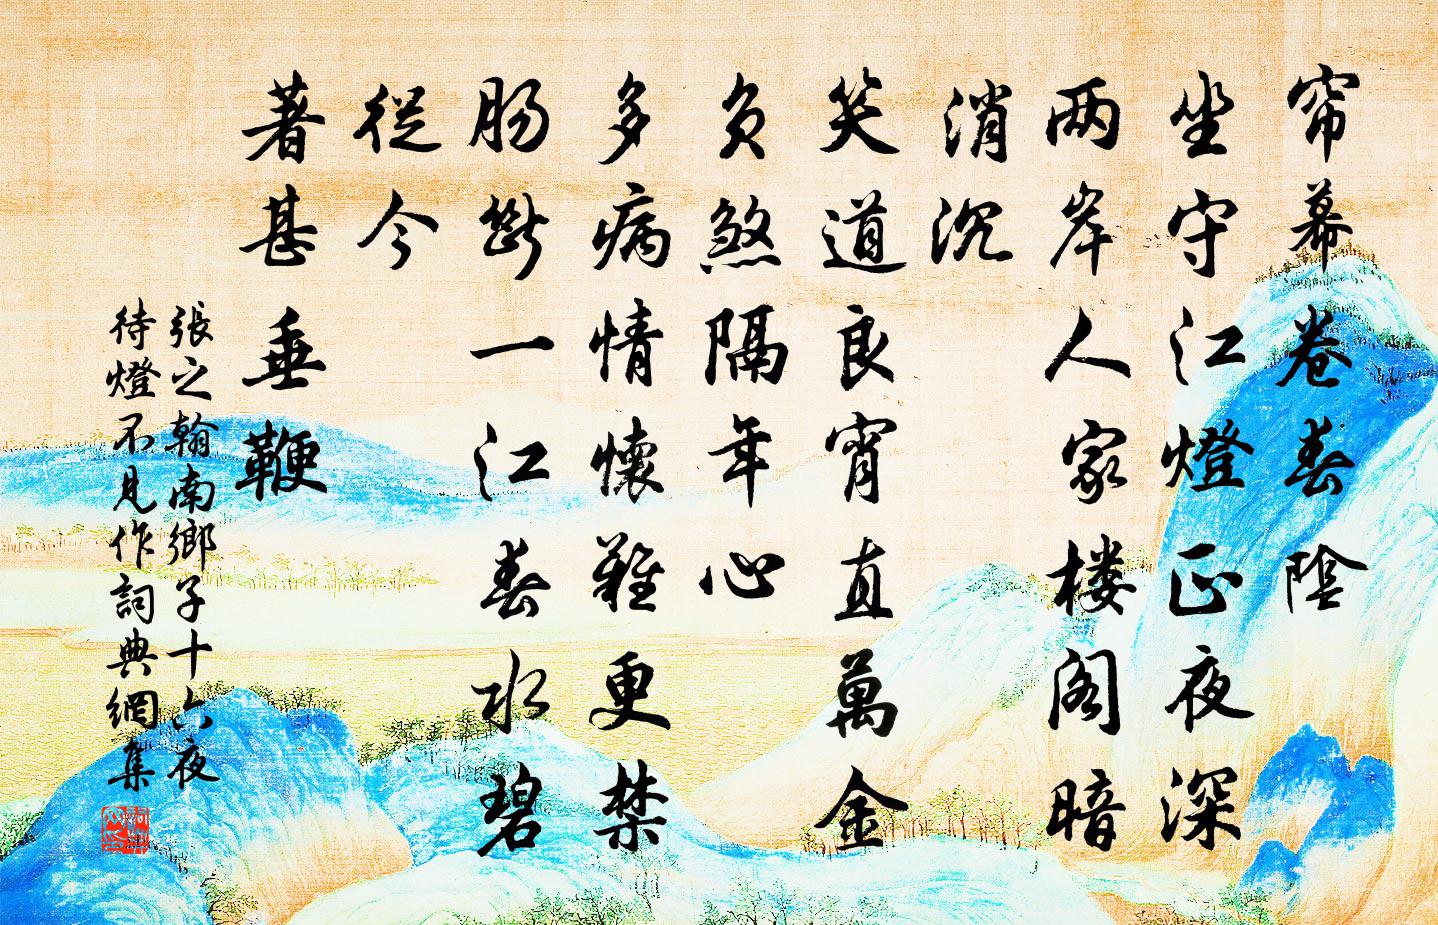 帘幕卷春陰
坐守江燈正夜深
两岸人家楼阁暗
消沉
笑道良宵直萬金
負煞隔年心
多病情懷難更禁
腸斷一江春水碧
從今
著甚垂鞭
張之翰南鄉子十六夜
待燈不見作詞典網集